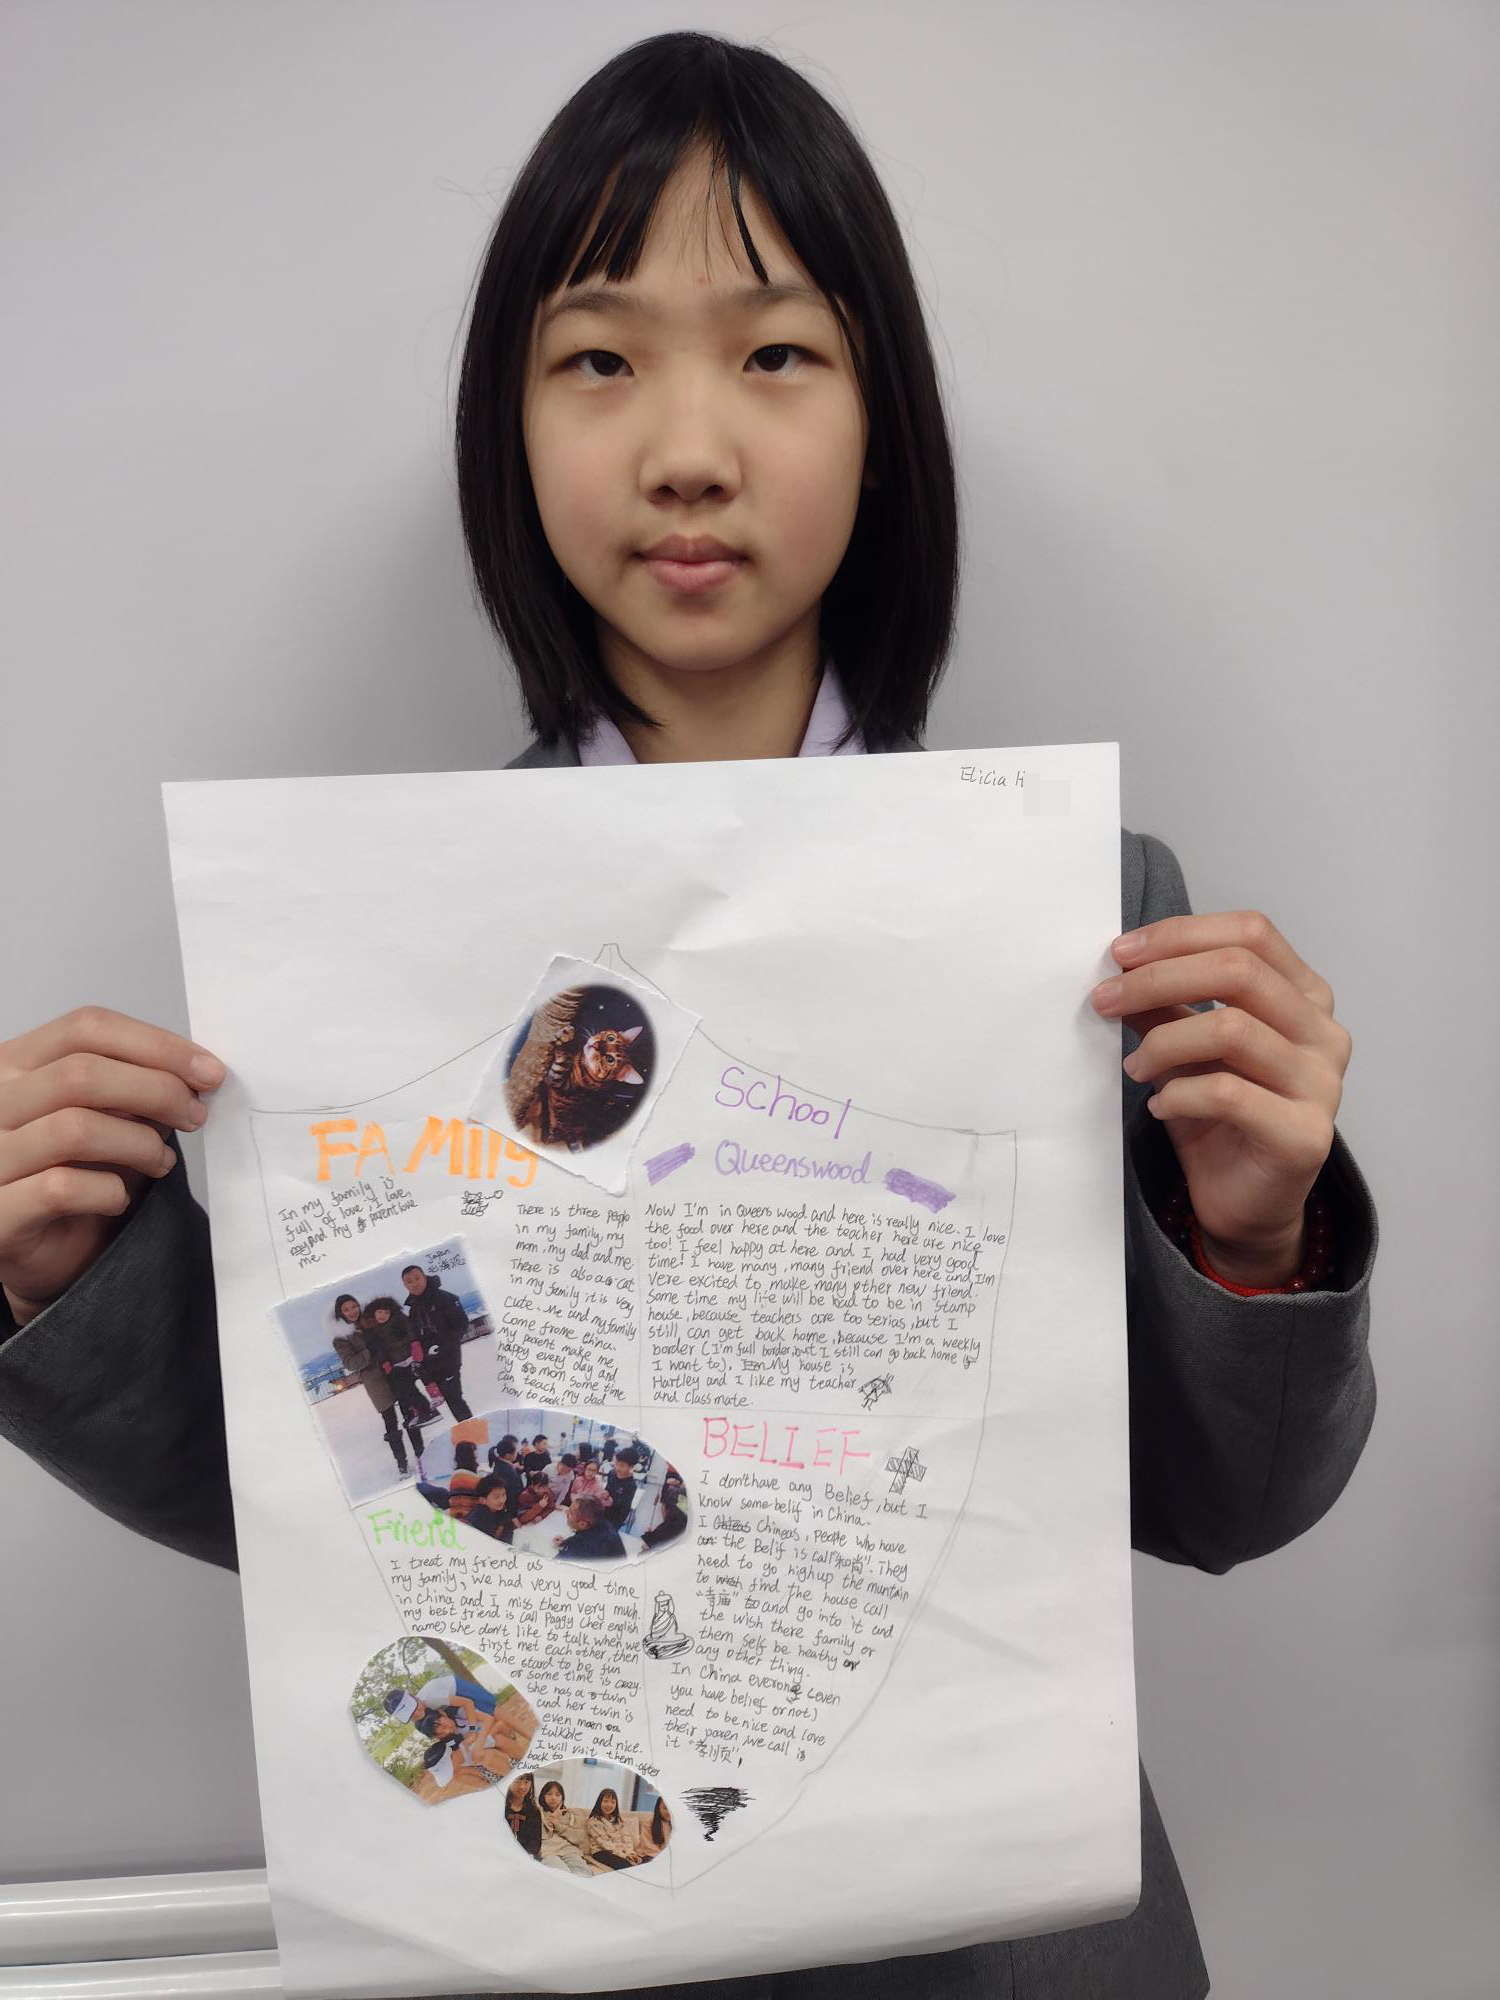 Elicia H
FAMIlY
In my family is
full of love, I love
my parent love
me.
There is three people
in my family, my
mom, my dad and me.
There is also a cat
in my family it is very
cute. Me and my family
come frome China.
My parent make me
happy every day and
my mom some time
can teach my dad
how to cook!
Japan
北海道
School
Queenswood
Now I'm in Queens wood and here is really nice. I love
the food over here and the teacher here are nice
too! I feel happy at here and I had very good
time! I have many, many friend over here and I'm
vere excited to make many other now friend.
Some time my life will be bad to be in stamp
house, because teachers are too serias, but I
still can get back home, because I'm a weekly
border (I'm full border, but I still can go back home if
I want to). My house is
Hartley and I like my teacher
and classmate.
BELIEF
I don't have any Belief, but I
know some belif in China.
I Chineas, people who have
the Belif is call "和尚". They
need to go high up the muntain
to find the house call
"寺庙" and go into it and
the wish there family or
them self be heathy or
any other thing.
In China everone (even
you have belief or not)
need to be nice and love
their paren, we call is
it "孝顺",
Friend
I treat my friend as
my family, we had very good time
in China and I miss them very much.
my best friend is call Paggy (her english
name) she don't like to talk when we
first met each other, then
she stard to be fun
or some time is crazy.
she has a twin
and her twin is
even
talkble and nice.
I will visit them after
back to China